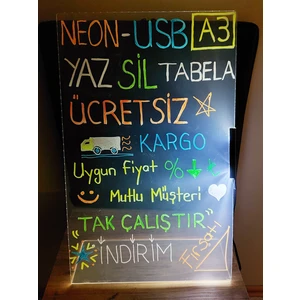 NEON-USB A3
YAZ SİL TABELA
ÜCRETSİZ
KARGO
Uygun Fiyat %
Mutlu Müşteri
"TAK ÇALIŞTIR"
İNDİRİM
Fırsatı